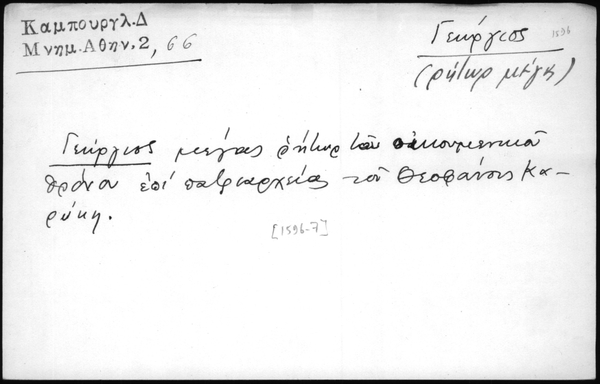 Καμπουργλ.Δ
Μνημ.Αθην.2, 66
Γεώργιος 1596
(ρήτωρ μέγας)
Γεώργιος μέγας ρήτωρ του οικουμενικού
θρόνου επί πατριαρχείας του Θεοφάνους Κα-
ρύκη.
[1596-7]